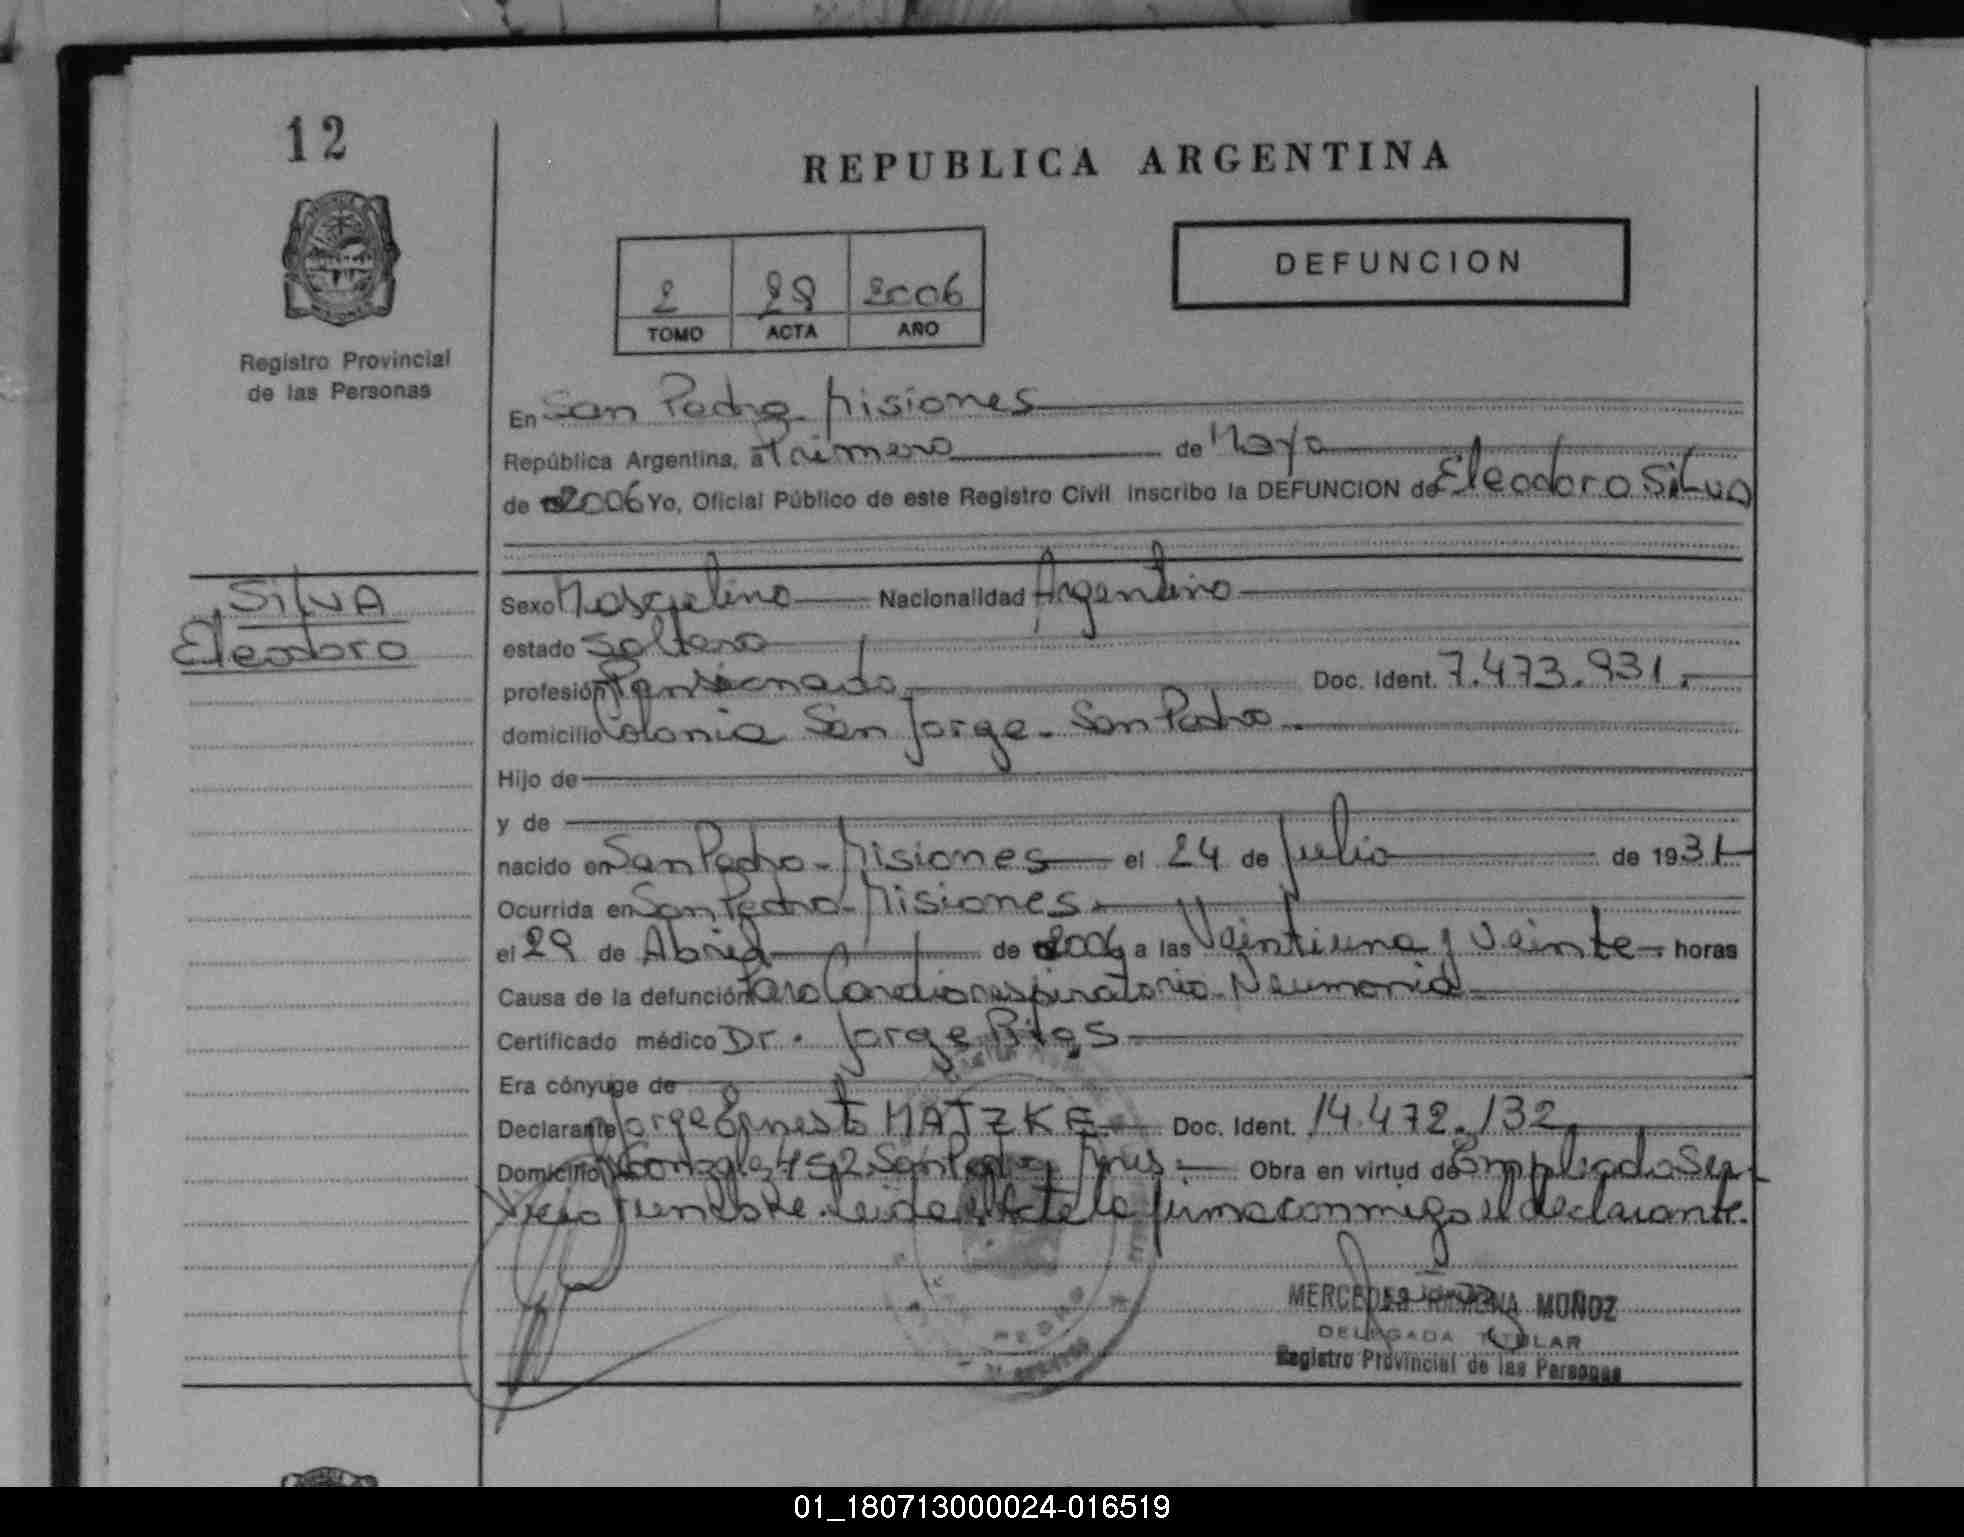 12
REPUBLICA ARGENTINA
DEFUNCION
2 29 2006
TOMO ACTA AÑO
Registro Provincial
de las Personas
En San Pedro - Misiones
República Argentina, a Primero de Mayo
de 2006 Yo, Oficial Público de este Registro Civil inscribo la DEFUNCION de Eleodoro Silva
Silva
Eleodoro
Sexo Masculino Nacionalidad Argentino
estado Soltero
profesión Pensionado Doc. Ident. 7.473.931.
domicilio Colonia San Jorge - San Pedro
Hijo de
y de
nacido en San Pedro - Misiones el 24 de Julio de 1931
Ocurrida en San Pedro - Misiones
el 29 de Abril de 2006 a las Veintiuna y Veinte horas
Causa de la defunción Paro Cardiorespiratorio - Neumonia
Certificado médico Dr. Jorge
Era cónyuge de
Declarante Jorge Ernesto MATZKE Doc. Ident. 14.472.132
Domicilio 752 San Pedro Mnes Obra en virtud de Empleado Ser-
vicio Funebre. Leida el Acta la firma conmigo el declarante.
MERCEDES RAMONA MUÑOZ
DELEGADA TITULAR
Registro Provincial de las Personas
01_180713000024-016519